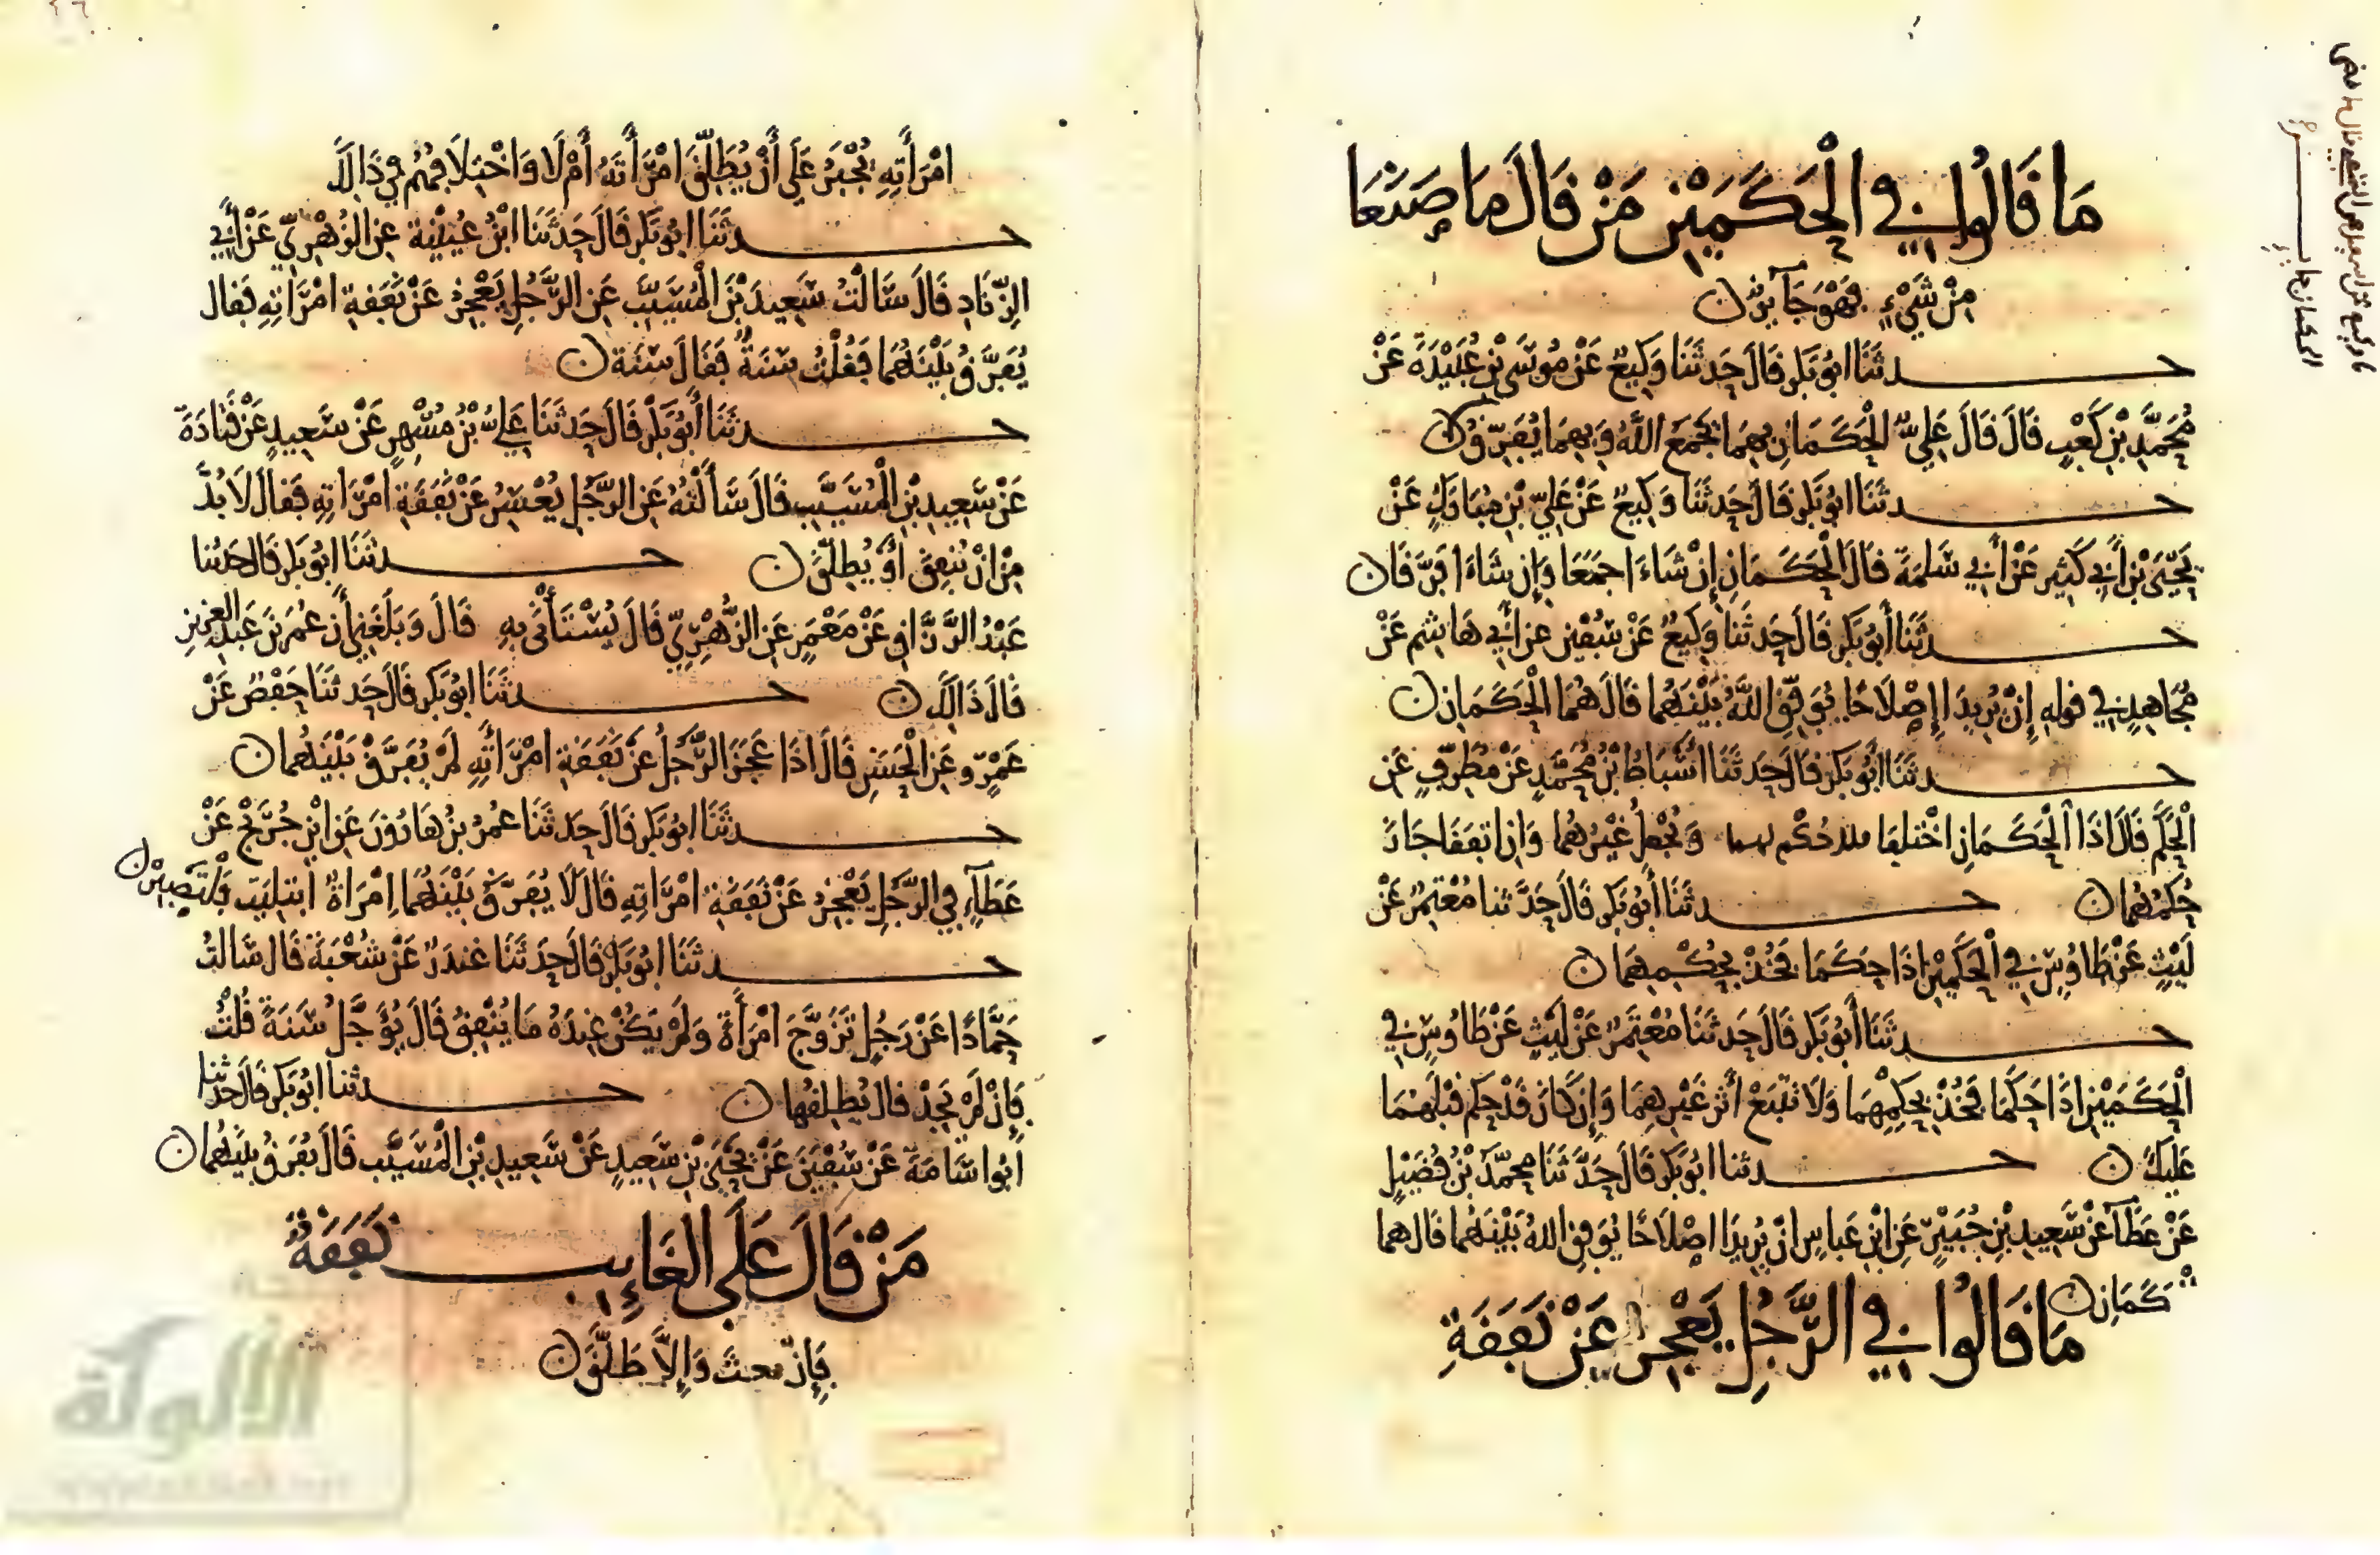 مَا قَالُوا فِي الْحَكَمَيْنِ مَنْ قَالَ مَا صَنَعَا
مِنْ شَيْءٍ فَهُوَ جَآئِزٌ ن
حدثَنَا ابُو بَكرٍ قَالَ حَدثَنَا وَكِيعٌ عَنْ مُوسَى بْنِ عُبَيْدَةَ عَنْ
مُحَمَّدِ بْنِ كَعْبٍ قَالَ قَالَ عَلِيٌّ الْحَكَمَانِ بِهِمَا يَجْمَعُ اللَّهُ وَبِهِمَا يُفَرِّقُ ن
حدثَنَا ابُو بَكرٍ قَالَ حَدثَنَا وَكِيعٌ عَنْ عَلِيِّ بْنِ مُبَارَكٍ عَنْ
يَحْيَى بْنِ أَبِي كَثِيرٍ عَنْ أَبِي سَلَمَةَ قَالَ الْحَكَمَانِ إِنْ شَاءَا جَمَعَا وَإِن شَاءَا فَرَّقَا ن
حدثَنَا أَبُو بَكرٍ قَالَ حَدثَنَا وَكِيعٌ عَنْ سُفْيٰنَ عن أَبِي هَاشِمٍ عَنْ
مُجَاهِدٍ فِي قوله إِنْ يُرِيدَا إِصْلَاحًا يُوَفِّقِ اللَّهُ بَيْنَهُمَا قَالَ هُمَا الْحَكَمَانِ ن
حدثَنَا أَبُو بَكرٍ قَالَ حَدثَنَا أَسْبَاطُ بْنُ مُحَمَّدٍ عَنْ مُطَرِّفٍ عَنِ
الْحَكَمِ قَالَ اذَا الْحَكَمَانِ اخْتَلَفَا فلا حُكْم لهما وَيُجْعَلُ غَيْرُهُمَا وَانِ اتفَقَا جَازَ
حُكْمُهُمَا ن حدثَنَا أَبُو بَكرٍ قَالَ حَدَّثنا مُعْتَمِرٌ عَنْ
لَيْثٍ عَنْ طَاوُسٍ فِي الْحَكَمَيْنِ اذَا حَكَمَا فَخُذْ بِحُكْمِهِمَا ن
حدثَنَا أَبُو بَكرٍ قَالَ حَدثَنَا مُعْتَمِرٌ عَنْ لَيْثٍ عَنْ طَاوُسٍ فِي
الْحَكَمَيْنِ اذَا حَكَمَا فَخُذْ بِحُكْمِهِمَا وَلَا تَتْبَعْ أَثَرَ غَيْرِهِمَا وَإِنْ كَانَ قَدْ حَكَمَ قَبْلَهُمَا
عَلَيْكَ ن حدثنا ابُو بَكرٍ قَالَ حَدَّثَنَا مُحَمَّدُ بْنُ فُضَيْلٍ
عَنْ عَطَآءٍ عَنْ سَعِيدِ بْنِ جُبَيْرٍ عَنِ ابْنِ عَبَاسٍ انْ يُرِيدَا اصْلَاحًا يُوَفِقِ اللهُ بَيْنَهُمَا قَالَ هما
كَمَانِ ن مَا قَالُوا فِي الرَّجُلِ يَعْجِزُ عَنْ نَفَقَةِ
امْرَأَتِهِ يُجْبَرُ عَلَى أَنْ يُطَلِّقَ امْرَأَتَهُ أَمْ لَا وَاخْتِلَافُهُمْ فِي ذَالِكَ
حدثَنَا ابُو بَكرٍ قَالَ حَدَّثَنَا ابْنُ عُيَيْنَةَ عَنِ الزُّهْرِيِّ عَنْ أَبِي
الزِّنَادِ قَالَ سَالْتُ سَعِيدَ بْنَ الْمُسَيَّبِ عَنِ الرَّجُلِ يَعْجِزُ عَنْ نَفَقَةِ امْرَاتِهِ فَقال
يُفَرَّقُ بَيْنَهُمَا فَقُلْتُ سَنَةٌ فَقَالَ سَنَة ن
حدثَنَا أَبُو بَكرٍ قَالَ حَدثَنَا عَلِيُّ بْنُ مُسْهِرٍ عَنْ سَعِيدٍ عَنْ قَتَادَةَ
عَنْ سَعِيدِ بْنِ الْمُسَيَّبِ قَالَ سَأَلْتُهُ عَنِ الرَّجُلِ يُعْسِرُ عَنْ نَفَقَةِ امْرَاتِهِ فَقَالَ لَا بُدَّ
مِنْ انْ يُنْفِقَ أَوْ يُطَلِّقَ ن حدثَنَا ابُو بَكرٍ قَالَ حَدثنا
عَبْدُ الرَّزَّاقِ عَنْ مَعْمَرٍ عَنِ الزُّهْرِيِّ قَالَ يُسْتَأْنَى بِهِ قَالَ وَبَلَغَنِي أَن عُمَرَ بْنَ عَبْدِ الْعَزِيزِ
قَالَ ذَالِكَ ن حدثَنَا ابُو بَكرٍ قَالَ حَدثَنَا حَفْصٌ عَنْ
عَمْرٍو عَنِ الْحَسَنِ قَالَ اذَا عَجَزَ الرَّجُلُ عَنْ نَفَقَةِ امْرَأَتِهِ لَمْ يُفَرَّقْ بَيْنَهُمَا ن
حدثَنَا ابُو بَكرٍ قَالَ حَدثَنَا عُمَرُ بْنُ هَارُونَ عَنِ ابْنِ جُرَيْجٍ عَنْ
عَطَآءٍ فِي الرَّجُلِ يَعْجِزُ عَنْ نَفَقَةِ امْرَاتِهِ قَالَ لَا يُفَرَّقُ بَيْنَهُمَا امْرَاةٌ ابْتُلِيَتْ فَلْتَصْبِرْ ن
حدثَنَا ابُو بَكرٍ قَالَ حَدثَنَا غُنْدَرٌ عَنْ شُعْبَةَ قَالَ سَالتُ
حَمَّادًا عَنْ رَجُلٍ تَزَوَّجَ امْرَأَةً وَلَمْ يَكُنْ عِنْدَهُ مَا يُنْفِقُ قَالَ يُؤَجَّلُ سَنَةً قُلْتُ
فَإِنْ لَمْ يَجِدْ قال يُطَلِّقُهَا ن حدثنا ابُو بَكرٍ قَالَ حَدثنا
ابُو اسَامَةَ عَنْ سُفْيٰنَ عَنْ يَحْيَى بْنِ سَعِيدٍ عَنْ سَعِيدِ بْنِ الْمُسَيَّبِ قَالَ يُفَرَّقُ بَيْنَهُمَا ن
مَنْ قَالَ عَلَى الْغَائِبِ نَفَقَةٌ
فَإِنْ بعث وَإِلَّا طَلَّقَ ن
الألوكة